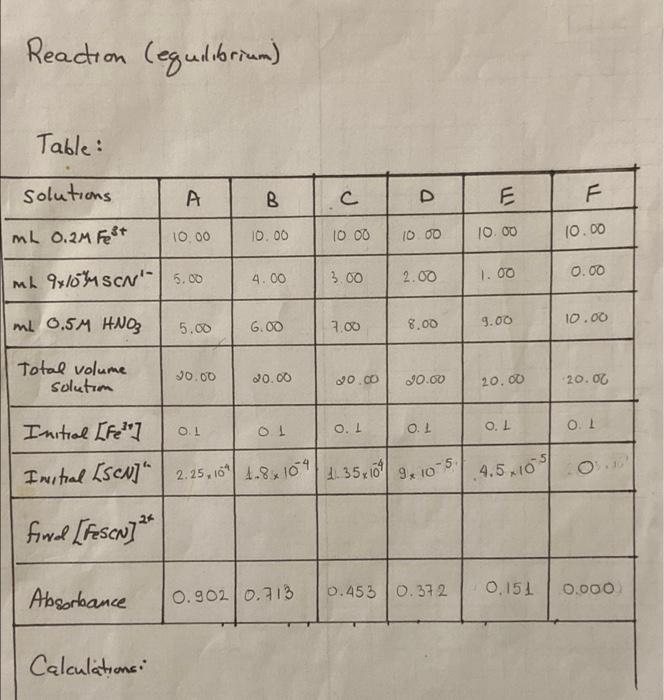 Reaction (equilibrium)
Table:
Solutions A B C D E F
mL 0.2M Fe³⁺ 10.00 10.00 10.00 10.00 10.00 10.00
mL 9x10⁻⁴M SCN¹⁻ 5.00 4.00 3.00 2.00 1.00 0.00
mL 0.5M HNO₃ 5.00 6.00 7.00 8.00 9.00 10.00
Total volume
solution 20.00 20.00 20.00 20.00 20.00 20.00
Initial [Fe³⁺] 0.1 0.1 0.1 0.1 0.1 0.1
Initial [SCN]¹⁻ 2.25x10⁻⁴ 1.8x10⁻⁴ 1.35x10⁻⁴ 9x10⁻⁵ 4.5x10⁻⁵ 0
final [FeSCN]²⁺
Absorbance 0.902 0.713 0.453 0.372 0.151 0.000
Calculations: